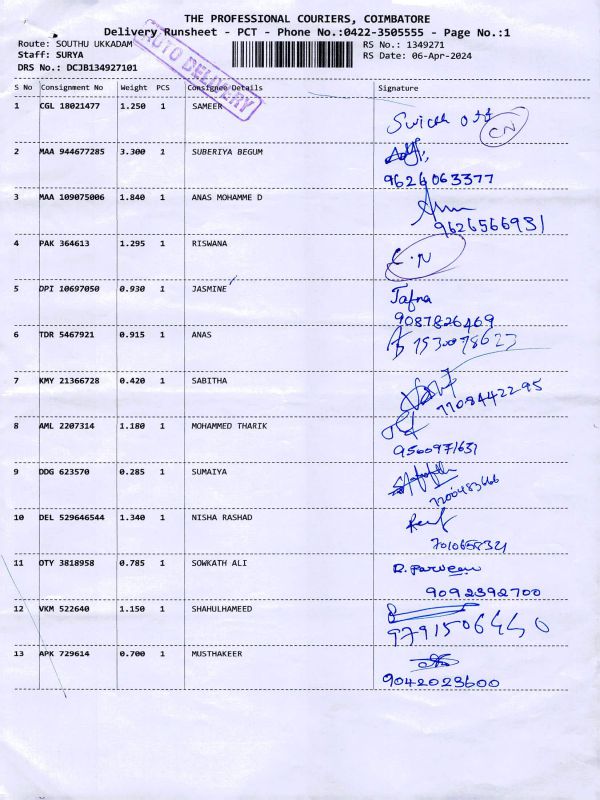 THE PROFESSIONAL COURIERS, COIMBATORE
Delivery Runsheet - PCT - Phone No.:0422-3505555 - Page No.:1
Route: SOUTHU UKKADAM
RS No.: 1349271
Staff: SURYA
RS Date: 06-Apr-2024
DRS No.: DCJB134927101
AUTO DELIVERY
S No Consignment No Weight PCS Consignee Details Signature
1 CGL 18021477 1.250 1 SAMEER
Switch off CN
2 MAA 944677285 3.300 1 SUBERIYA BEGUM
9626063377
3 MAA 109075006 1.840 1 ANAS MOHAMME D
9626566931
4 PAK 364613 1.295 1 RISWANA
C.N
5 DPI 10697050 0.930 1 JASMINE
Jafna
9087826469
6 TDR 5467921 0.915 1 ANAS
7 KMY 21366728 0.420 1 SABITHA
7708442295
8 AML 2207314 1.180 1 MOHAMMED THARIK
9500971631
9 DDG 623570 0.285 1 SUMAIYA
10 DEL 529646544 1.340 1 NISHA RASHAD
11 OTY 3818958 0.785 1 SOWKATH ALI
R. Parveen
9092392700
12 VKM 522640 1.150 1 SHAHULHAMEED
13 APK 729614 0.700 1 MUSTHAKEER
9042023600